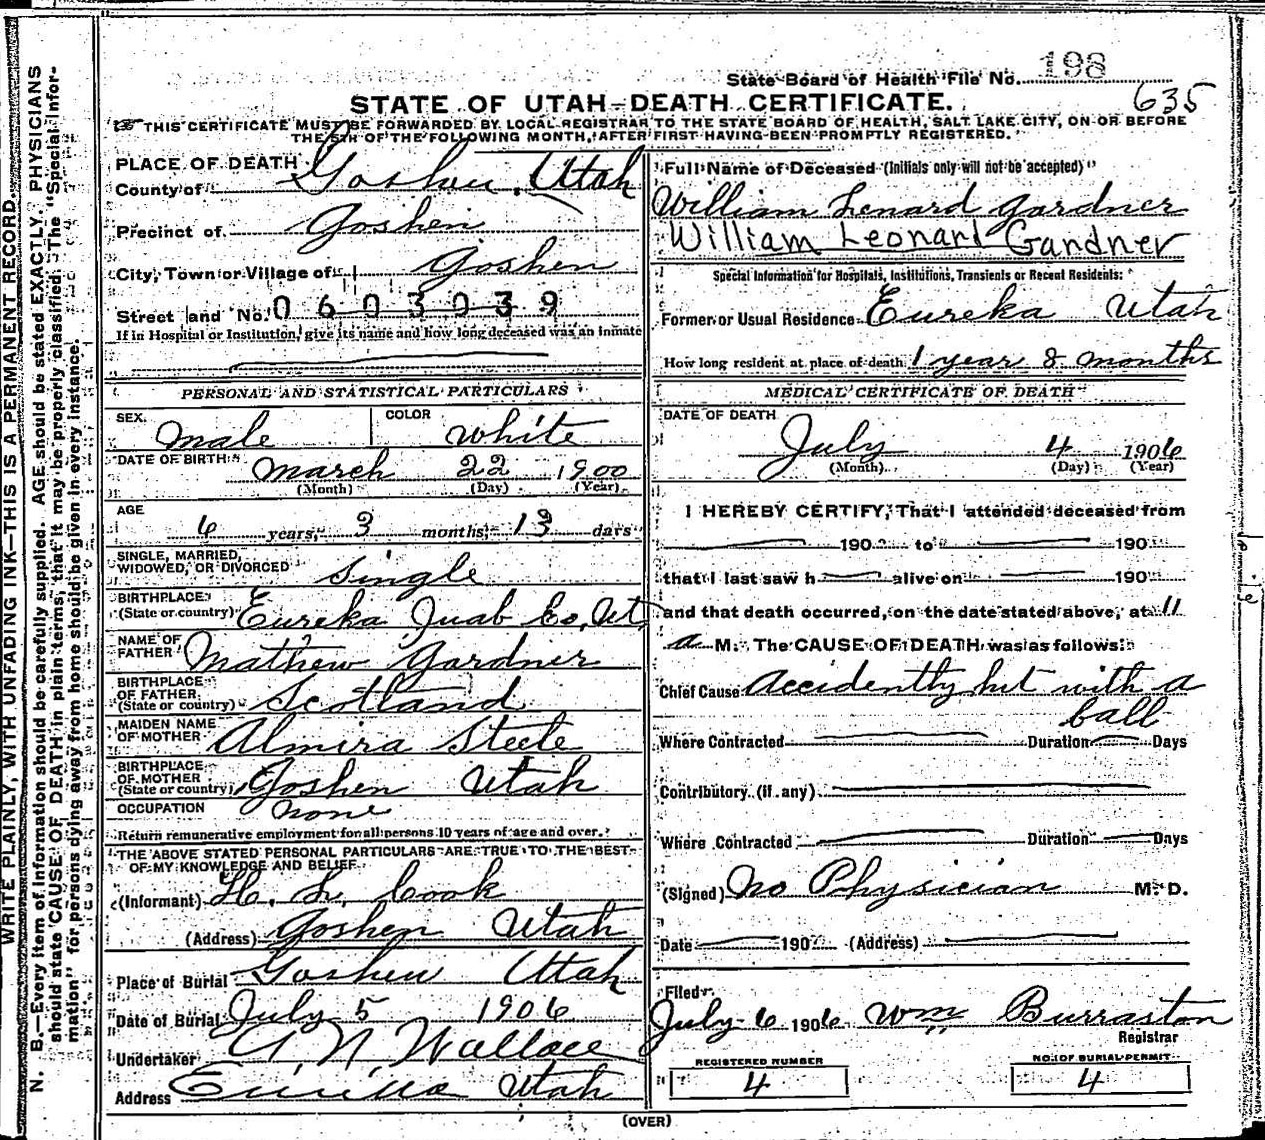 State Board of Health File No. 198
635
STATE OF UTAH—DEATH CERTIFICATE.
THIS CERTIFICATE MUST BE FORWARDED BY LOCAL REGISTRAR TO THE STATE BOARD OF HEALTH, SALT LAKE CITY, ON OR BEFORE
THE 5TH OF THE FOLLOWING MONTH, AFTER FIRST HAVING BEEN PROMPTLY REGISTERED.
WRITE PLAINLY, WITH UNFADING INK—THIS IS A PERMANENT RECORD.
N. B.—Every item of information should be carefully supplied. AGE should be stated EXACTLY. PHYSICIANS
should state CAUSE OF DEATH in plain terms, that it may be properly classified. The "Special Infor-
mation" for persons dying away from home should be given in every instance.
PLACE OF DEATH
County of Goshen, Utah
Precinct of Goshen
City, Town or Village of Goshen
Street and No. 0603039
If in Hospital or Institution, give its name and how long deceased was an inmate
PERSONAL AND STATISTICAL PARTICULARS
SEX Male COLOR White
DATE OF BIRTH March 22 1900
(Month) (Day) (Year)
AGE
6 years, 3 months, 13 days
SINGLE, MARRIED,
WIDOWED, OR DIVORCED Single
BIRTHPLACE
(State or country) Eureka Juab Co, Ut,
NAME OF
FATHER Mathew Gardner
BIRTHPLACE
OF FATHER
(State or country) Scotland
MAIDEN NAME
OF MOTHER Almira Steele
BIRTHPLACE
OF MOTHER
(State or country) Goshen Utah
OCCUPATION none
Return remunerative employment for all persons 10 years of age and over.
THE ABOVE STATED PERSONAL PARTICULARS ARE TRUE TO THE BEST
OF MY KNOWLEDGE AND BELIEF
(Informant) H. L. Cook
(Address) Goshen Utah
Place of Burial Goshen Utah
Date of Burial July 5 1906
Undertaker A N Wallace
Address Utah
Full Name of Deceased (Initials only will not be accepted)
William Lenard Gardner
William Leonard Gardner
Special Information for Hospitals, Institutions, Transients or Recent Residents:
Former or Usual Residence Eureka Utah
How long resident at place of death 1 year 8 months
MEDICAL CERTIFICATE OF DEATH
DATE OF DEATH
July 4 1906
(Month) (Day) (Year)
I HEREBY CERTIFY, That I attended deceased from
190 to 190
that I last saw h alive on 190
and that death occurred, on the date stated above, at 11
a M. The CAUSE OF DEATH was as follows:
Chief Cause Accidently hit with a
ball
Where Contracted Duration Days
Contributory (if any)
Where Contracted Duration Days
(Signed) No Physician M. D.
Date 190 (Address)
Filed
July 6 1906 Wm Burraston
Registrar
REGISTERED NUMBER
4
NO. OF BURIAL PERMIT
4
(OVER)